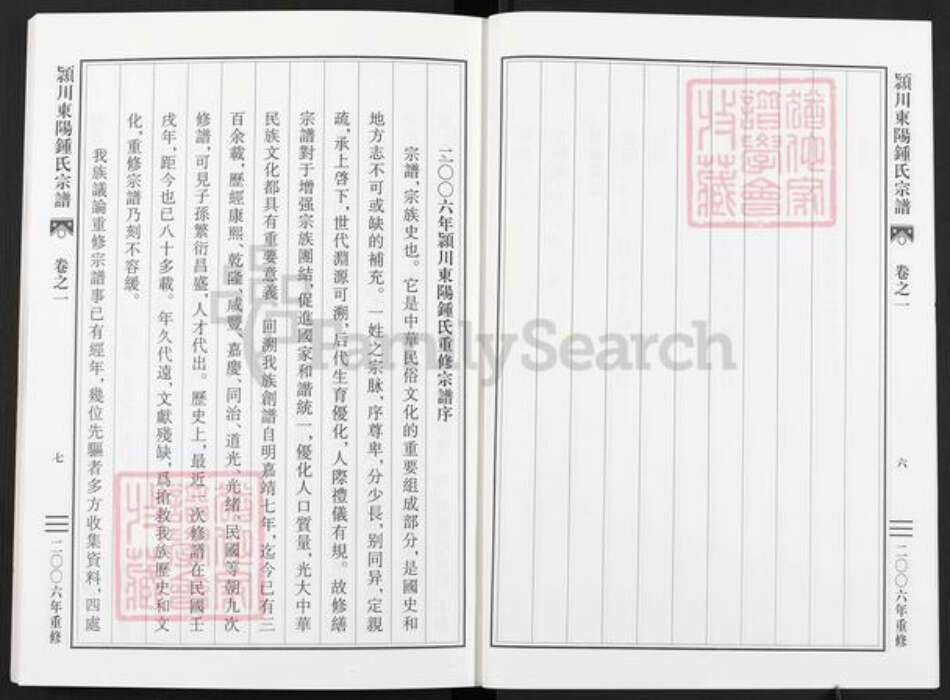 潁川東陽鍾氏宗譜
卷之一
六
二〇〇六年重修
二〇〇六年潁川東陽鍾氏重修宗譜序
宗譜，宗族史也。它是中華民俗文化的重要組成部分，是國史和
地方志不可或缺的補充。一姓之宗脉，序尊卑，分少長，别同异，定親
疏，承上啓下，世代淵源可溯，后代生育優化，人際禮儀有規。故修繕
宗譜對于增强宗族團結，促進國家和諧統一，優化人口質量，光大中華
民族文化都具有重要意義。回溯我族創譜自明嘉靖七年，迄今已有三
百余載，歷經康熙、乾隆、咸豐、嘉慶、同治、道光、光緒、民國等朝九次
修譜，可見子孫繁衍昌盛，人才代出。歷史上，最近一次修譜在民國壬
戌年，距今也已八十多載。年久代遠，文獻殘缺，爲搶救我族歷史和文
化，重修宗譜乃刻不容緩。
我族議論重修宗譜事已有經年，幾位先驅者多方收集資料，四處
潁川東陽鍾氏宗譜
卷之一
七
二〇〇六年重修
FamilySearch